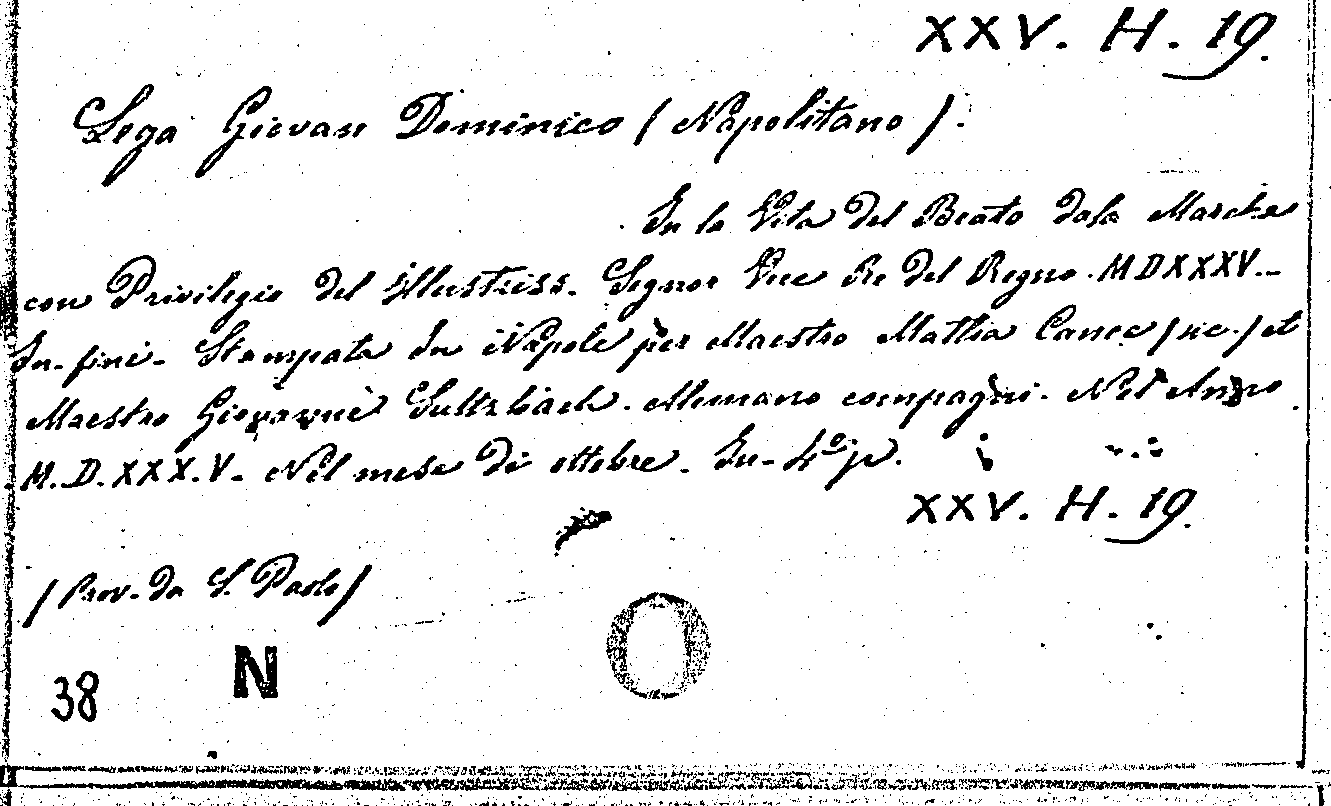 XXV. H. 19.
Lega Giovan Dominico (Napolitano).
In la Vita del Beato dala Marcha
con Privilegio del illustriss. Segnor Vice Re del Regno. MDXXXV. -
In-fine- Stampata in Napole per Maestro Mattia Cance (sic.) et
Maestro Giovanne Sultzbach. Alemano compagni. Nel Anno
M.D.XXX.V. Nel mese di ottobre. In-4º p.
XXV. H. 19.
(Prov. da S. Paolo)
38 N O